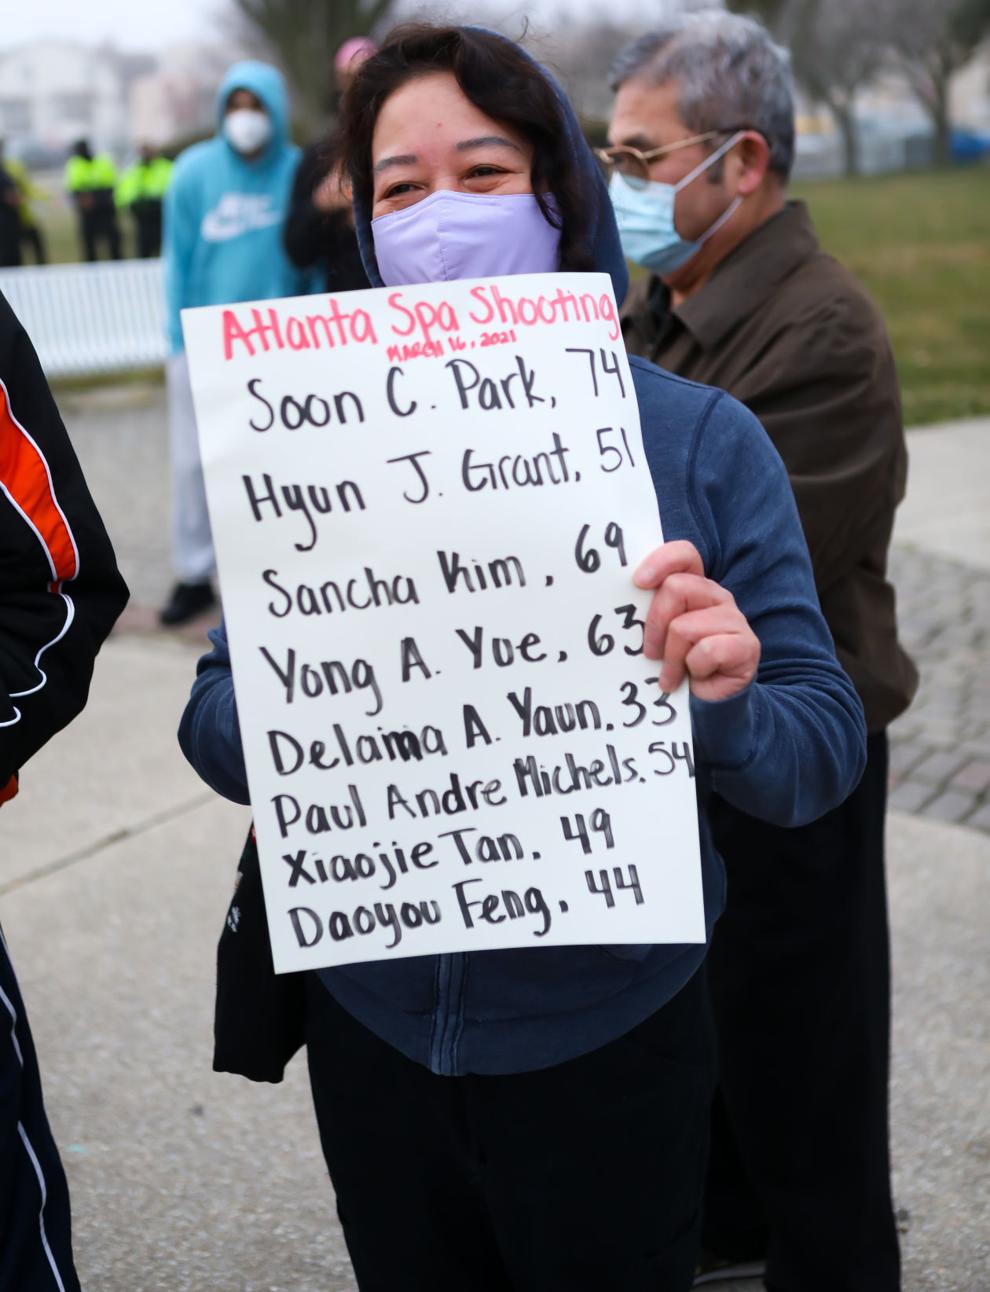 Atlanta Spa Shooting
MARCH 16, 2021
Soon C. Park, 74
Hyun J. Grant, 51
Sancha Kim, 69
Yong A. Yue, 63
Delaina A. Yaun. 33
Paul Andre Michels. 54
Xiaojie Tan. 49
Daoyou Feng. 44